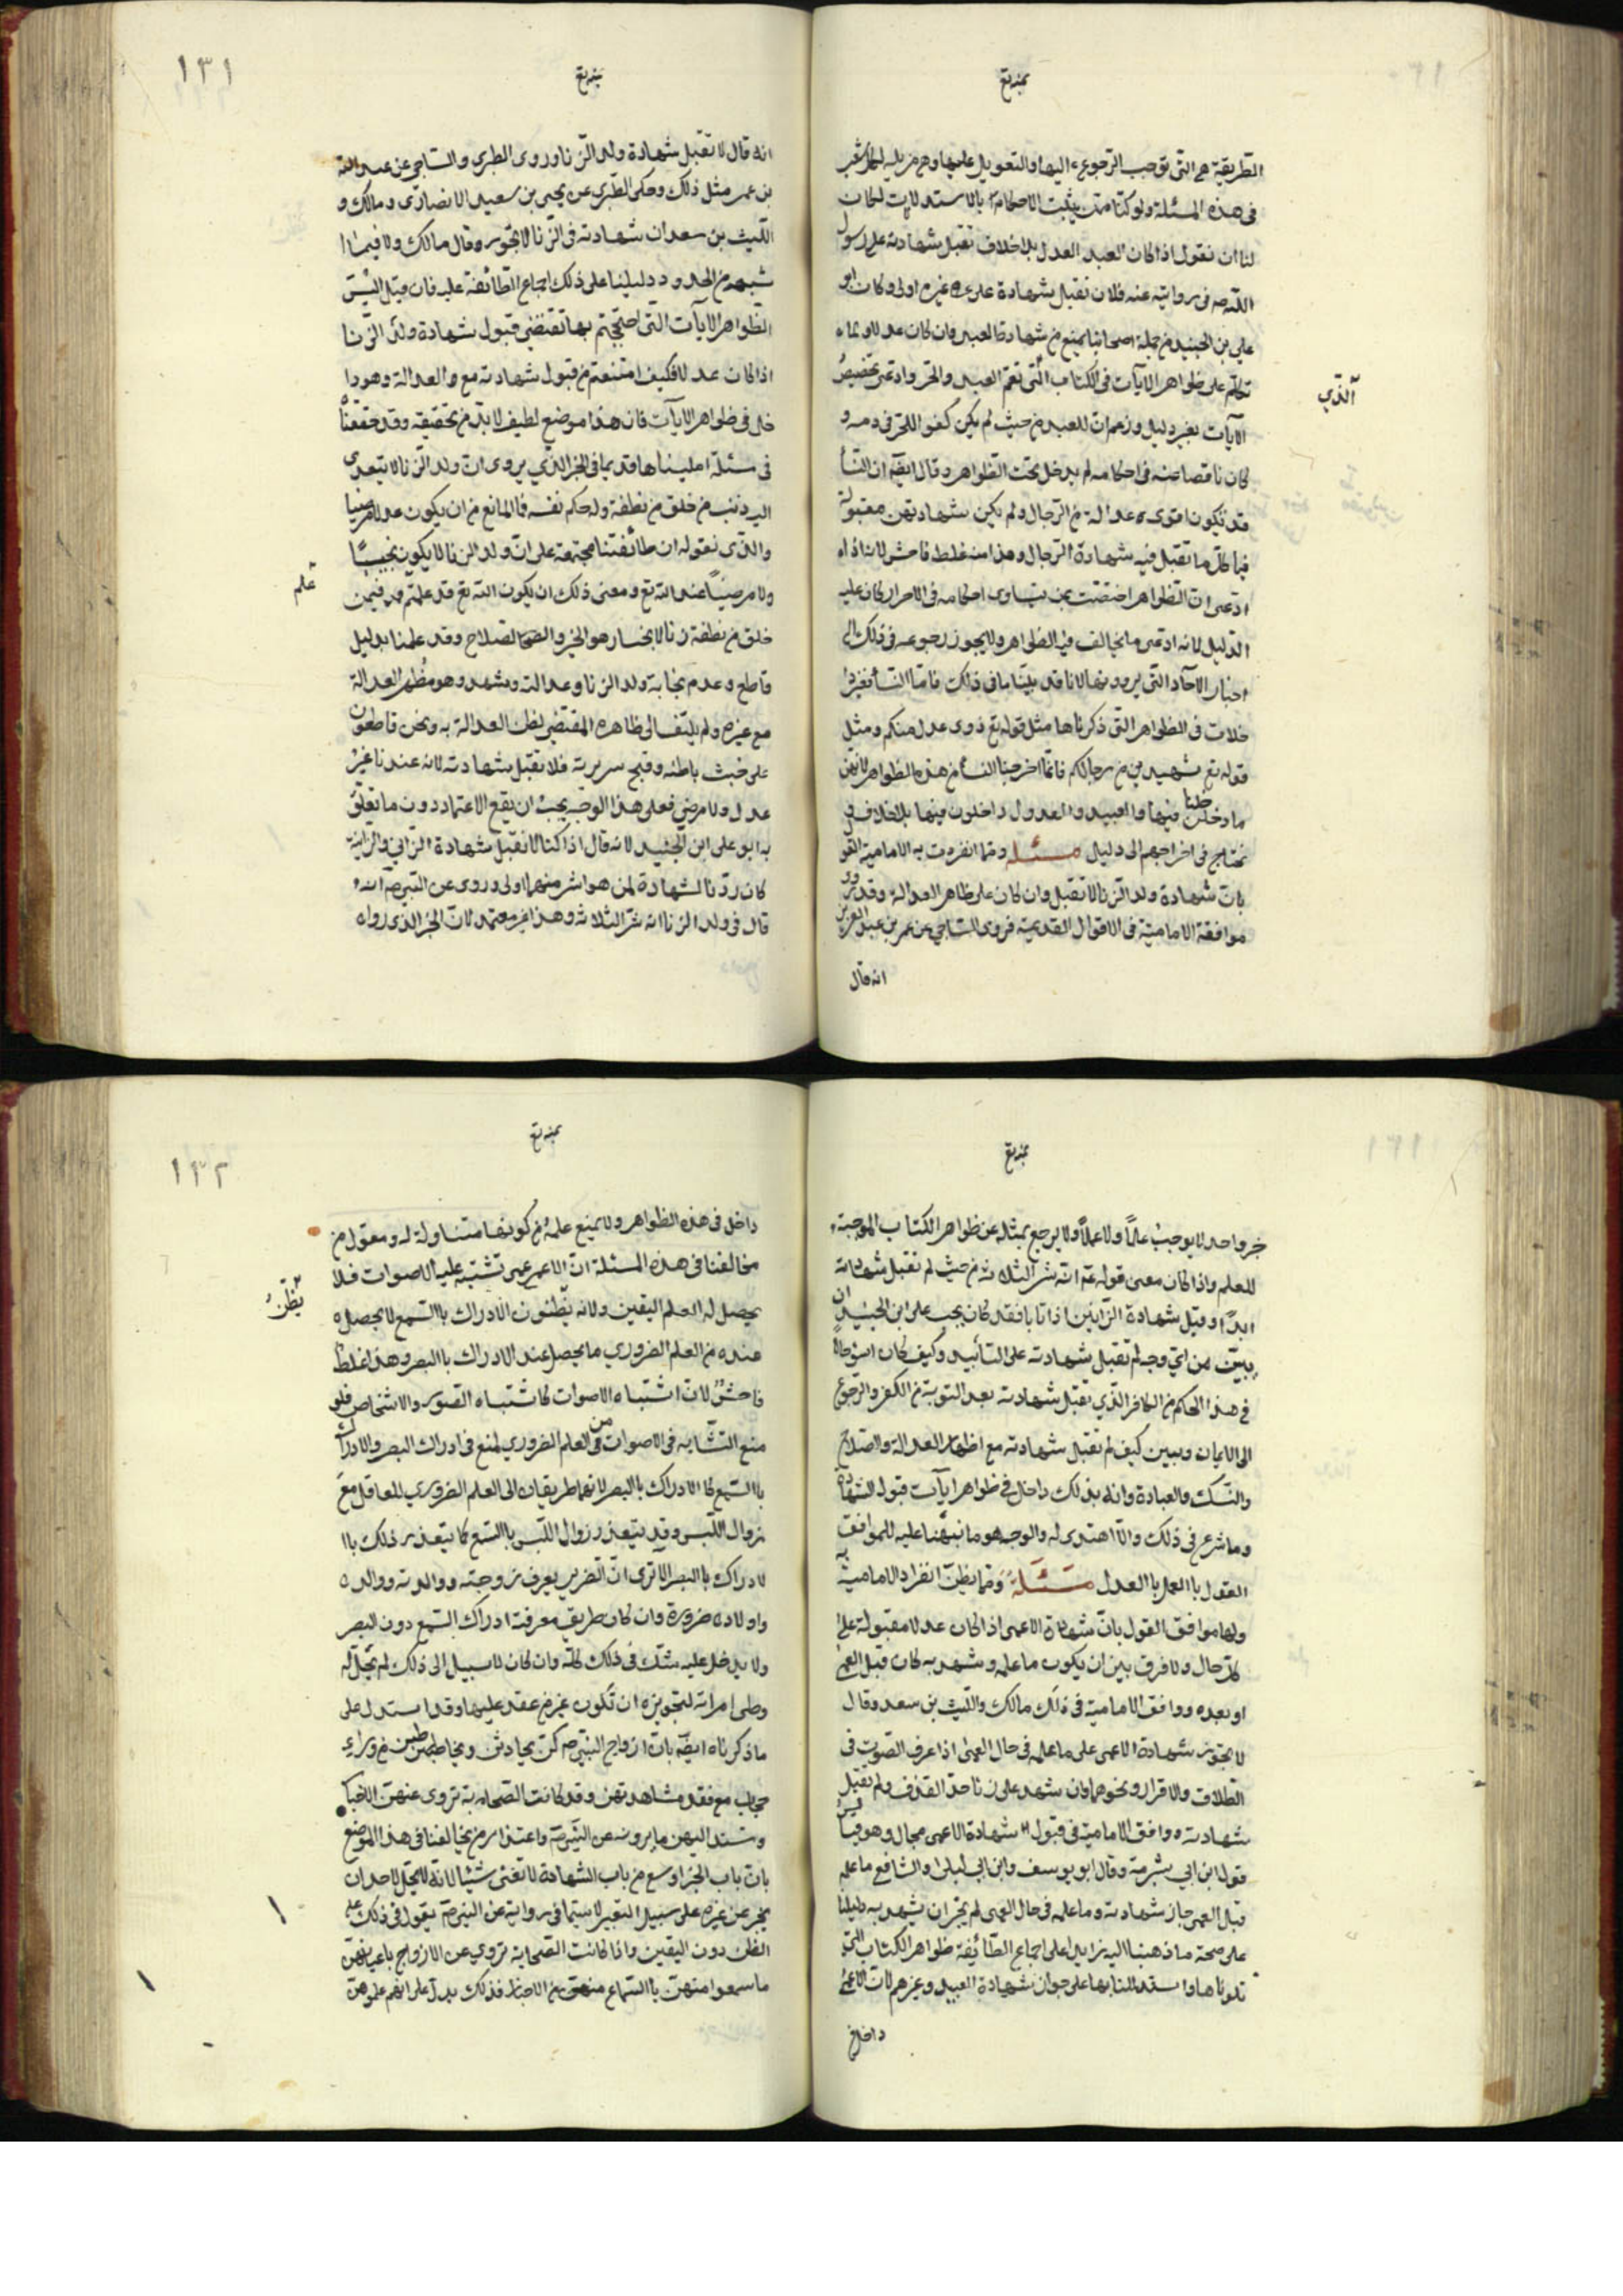 بنديع
الطريقة هي التي توجب الرجوع اليها والتعويل عليها وهي مزيلة لكل شغب
في هذه المسئلة ولو كنا ممن يثبت الاحكام بالاستدلالات لكان
لنا ان نقول اذا كان العبد العدل بلا خلاف تقبل شهادته على رسول
الله ص في روايته عنه فلان تقبل شهادة على غيره اولى وكان ابو
علي بن الجنيد من جملة اصحابنا يمنع من شهادة العبد وان كان عدلا ولماء
تكلم على ظواهر الايآت في الكتاب التي تعم العبد والحر وادعى تخصيص
الذي
الآيات بغير دليل وزعم ان العبد من حيث لم يكن كفوا للحر في دمه و
كان ناقصا عنه في احكامه لم يدخل تحت الظواهر وقال ايضا ان النسآ
قد يكون اقوى عدالة من الرجال ولم يكن شهادتهن مقبولة
في كل ما تقبل فيه شهادة الرجال وهذا منه غلط فاحش لانه اذا
ادعى ان الظواهر اختصت بمن يتساوى احكامه في الاحرار كان عليه
الدليل لانه ادعى ما يخالف فيه الظواهر ولا يجوز رجوعه في ذلك الى
اخبار الآحاد التي يروونها لانا قد بينا ما في ذلك فاما النسآ فغير دا
خلات في الظواهر التي ذكرناها مثل قوله تع ذوى عدل منكم ومثل
قوله تع شهيدين من رجالكم فانما اخرجنا النسآ من هذه الظواهر لانهن
ما دخلن فيها والعبيد والعدول داخلون فيها بلا خلاف في
نحتاج في اخراجهم الى دليل مسئلة ومما انفردت به الامامية القو
بان شهادة ولد الزنا لا تقبل وان كان على ظاهر العدالة وقد رو
موافقة الامامية في الاقوال القديمة فروى الساجي عن عمر بن عبد العزيز
انه قال
بنديع
١٣١
انه قال لا تقبل شهادة ولد الزنا وروى الطبري والساجي عن عبد الله
بن عمر مثل ذلك وحكى الطبري عن يحيى بن سعيد الانصارى ومالك و
الليث بن سعد ان شهادته في الزنا لا يجوز وقال مالك ولا فيما ا
شبهه من الحدود دليلنا على ذلك اجماع الطائفة عليه فان قيل اليس
الظواهر الايآت التي احتججتم بها تقتضي قبول شهادة ولد الزنا
اذا كان عدلا فكيف امتنعتم من قبول شهادته مع والعدالة وهو دا
خل في ظواهر الايآت فان هذا موضع لطيف لا بد من تحقيقه وقد حققنا
في مسئلة امليناها قديما في الخبر الذي يروى ان ولد الزنا لا يتعدى
اليه ذنب من خلق من نطفة وله حكم نفسه فما المانع من ان يكون عدلا مرضيا
والذى نقوله ان طائفتنا مجتمعة على ان ولد الزنا لا يكون نجيبا
ولا مرضيا عند الله تع ومعنى ذلك ان يكون الله تع قد علمتم قد فيمن
علم
خلق من نطفة زنا لا يختار هو الخير والصلاح وقد علمنا بدليل
قاطع وعدم نجابة ولد الزنا وعدالته وشهد وهو مظهر العدالة
مع غيره ولم يلتف الى ظاهره المقتضي لظن العدالة به ونحن قاطعون
على خبث باطنه وقبح سريرته فلا تقبل شهادته لانه عندنا غير
عدل ولا مرضي فعلى هذا الوجه يجب ان يقع الاعتماد دون ما تعلق
به ابو على ابن الجنيد لانه قال اذا كنا لا نقبل شهادة الزاني والزانية
كان ردنا لشهادة لمن هو اشر منهما اولى وروى عن النبي ص انه
قال في ولد الزنا انه شر الثلاثة وهذا غير معتمد لان الخبر الذي رواه
بنديع
خبر واحد لا يوجب علما ولا عملا ولا يرجع بمثله عن ظواهر الكتاب الموجبة
للعلم واذا كان معنى قوله عم انه شر الثلاثة من حيث لم تقبل شهادته
ابدا وقبل شهادة الزانين اذا تابا فقد كان يجب على ابن الجنيد ان
يبين من اي وجه لم تقبل شهادته على التأبيد وكيف كان اسؤ حالا
في هذا الحكم من الكافر الذي تقبل شهادته بعد التوبة من الكفر والرجوع
الى الايمان ويبين كيف لم تقبل شهادته مع اظهار العدالة والصلاح
والنسك والعبادة وانه بذلك داخل في ظواهر ايآت قبول الشهادة
وما شرع في ذلك والا اهتدى له والوجه هو ما نبهنا عليه للموافقة
القول باالعمل باالعدل مسئلة ومما يظن انفراد الامامية به
ولها موافق القول بان شهادة الاعمى اذا كان عدلا مقبولة على
كل حال ولا فرق بين ان يكون ما علمه وشهد به كان قبل العمى
او بعده ووافق الامامية في ذلك مالك والليث بن سعد وقال
لا تجوز شهادة الاعمى على ما علمه في حال العمى اذا عرف الصوت في
الطلاق والاقرار ونحوهما وان شهد على زنا حد القذف ولم تقبل
شهادته ووافق الامامية في قبول شهادة الاعمى مجال وهو قيا
قول ابن ابي شبرمة وقال ابو يوسف وابن ابي ليلى والشافع ما علمه
قبل العمى جاز شهادته وما علمه في حال العمى لم يجز ان يشهد به دليلنا
على صحة ما ذهبنا اليه زايدا على اجماع الطائفة ظواهر الكتاب التي
تلوناها واستدللنا بها على جواز شهادة العبيد وغيرهم لان الاعمى
داخل في
بنديع
١٣٢
داخل في هذه الظواهر ولا يمنع علمه من كونها متناولة له ومعول من
مخالفنا في هذه المسئلة ان الاعمى تشتبه عليه الاصوات فلا
يحصل له العلم اليقين ولانه يظنون الادراك باالسمع لا يحصل ه
يظن
عنده من العلم الضروري ما يحصل عند الادراك باالبصر وهذا غلط
فاحش لان اشتباه الاصوات كاشتباه الصور والاشخاص فلو
منع التشابه في الاصوات من العلم الضروري لمنع في ادراك البصر والادراك
باالسمع كالادراك باالبصر لانهما طريقان الى العلم الضروري للعاقل مع
زوال اللبس وقد يتعذر زوال اللبس باالسمع كما يتعذر ذلك باا
لادراك باالبصر الا ترى ان الضرير يعرف زوجته ووالدته ووالده
واولاده ضرورة وان كان طريق معرفته ادراك السمع دون البصر
ولا يدخل عليه شك في ذلك كله وان كان لا سبيل الى ذلك لم تحل له
وطى امراته لتجويزه ان تكون غير من عقد عليها وقد استدل على
ما ذكرناه ايضا بان ازواج النبي ص كن يحادثن ويخاطبن من وراء
حجاب مع فقد مشاهدتهن وقد كانت الصحابة تروى عنهن الاخبا
وتسند اليهن ما يروينه عن النبي ص واعتذار من يخالفنا في هذا الموضع
بان باب الخبر اوسع من باب الشهادة لا تغنى شيئا لانه لا يحل لاحد ان
يخبر عن غيره على سبيل التعيير لا سيما في رواية عن النبي ص يعول في ذلك على
الظن دون اليقين واذا كانت الصحابة تروي عن الازواج باعيانهن
ما سمعوا منهن باالسماع منهن من الاخبار فذلك يدل على انهم علموهن